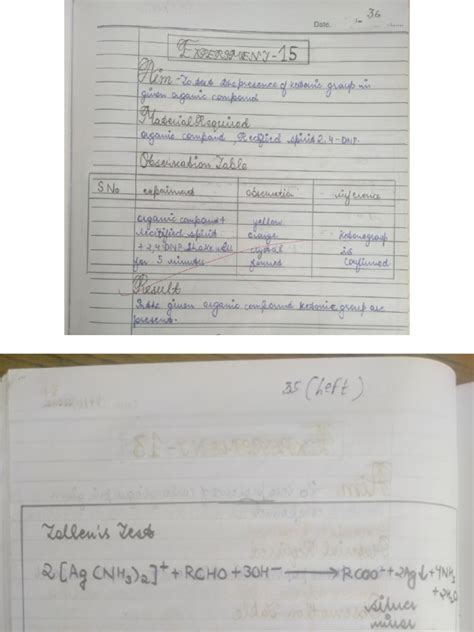 36
Date.
EXPERIMENT-15
Aim - To test the presence of ketonic group in
given organic compound
Material Required
organic compound, Rectified spirit 2,4-DNP.
Observation Table
S.No experiment observation inference
organic compound + yellow
rectified spirit orange ketonegroup
+ 2,4 DNP shake well crystal is
for 5 minutes formed confirmed
Result
In the given organic compound ketonic group are
present.
35 (Left)
EXPERIMENT-13
Aim
Tollen's Test
2[Ag(NH₃)₂]⁺ + RCHO + 3OH⁻ → RCOO⁻ + 2Ag↓ + 4NH₃
+ 2H₂O
silver
mirror